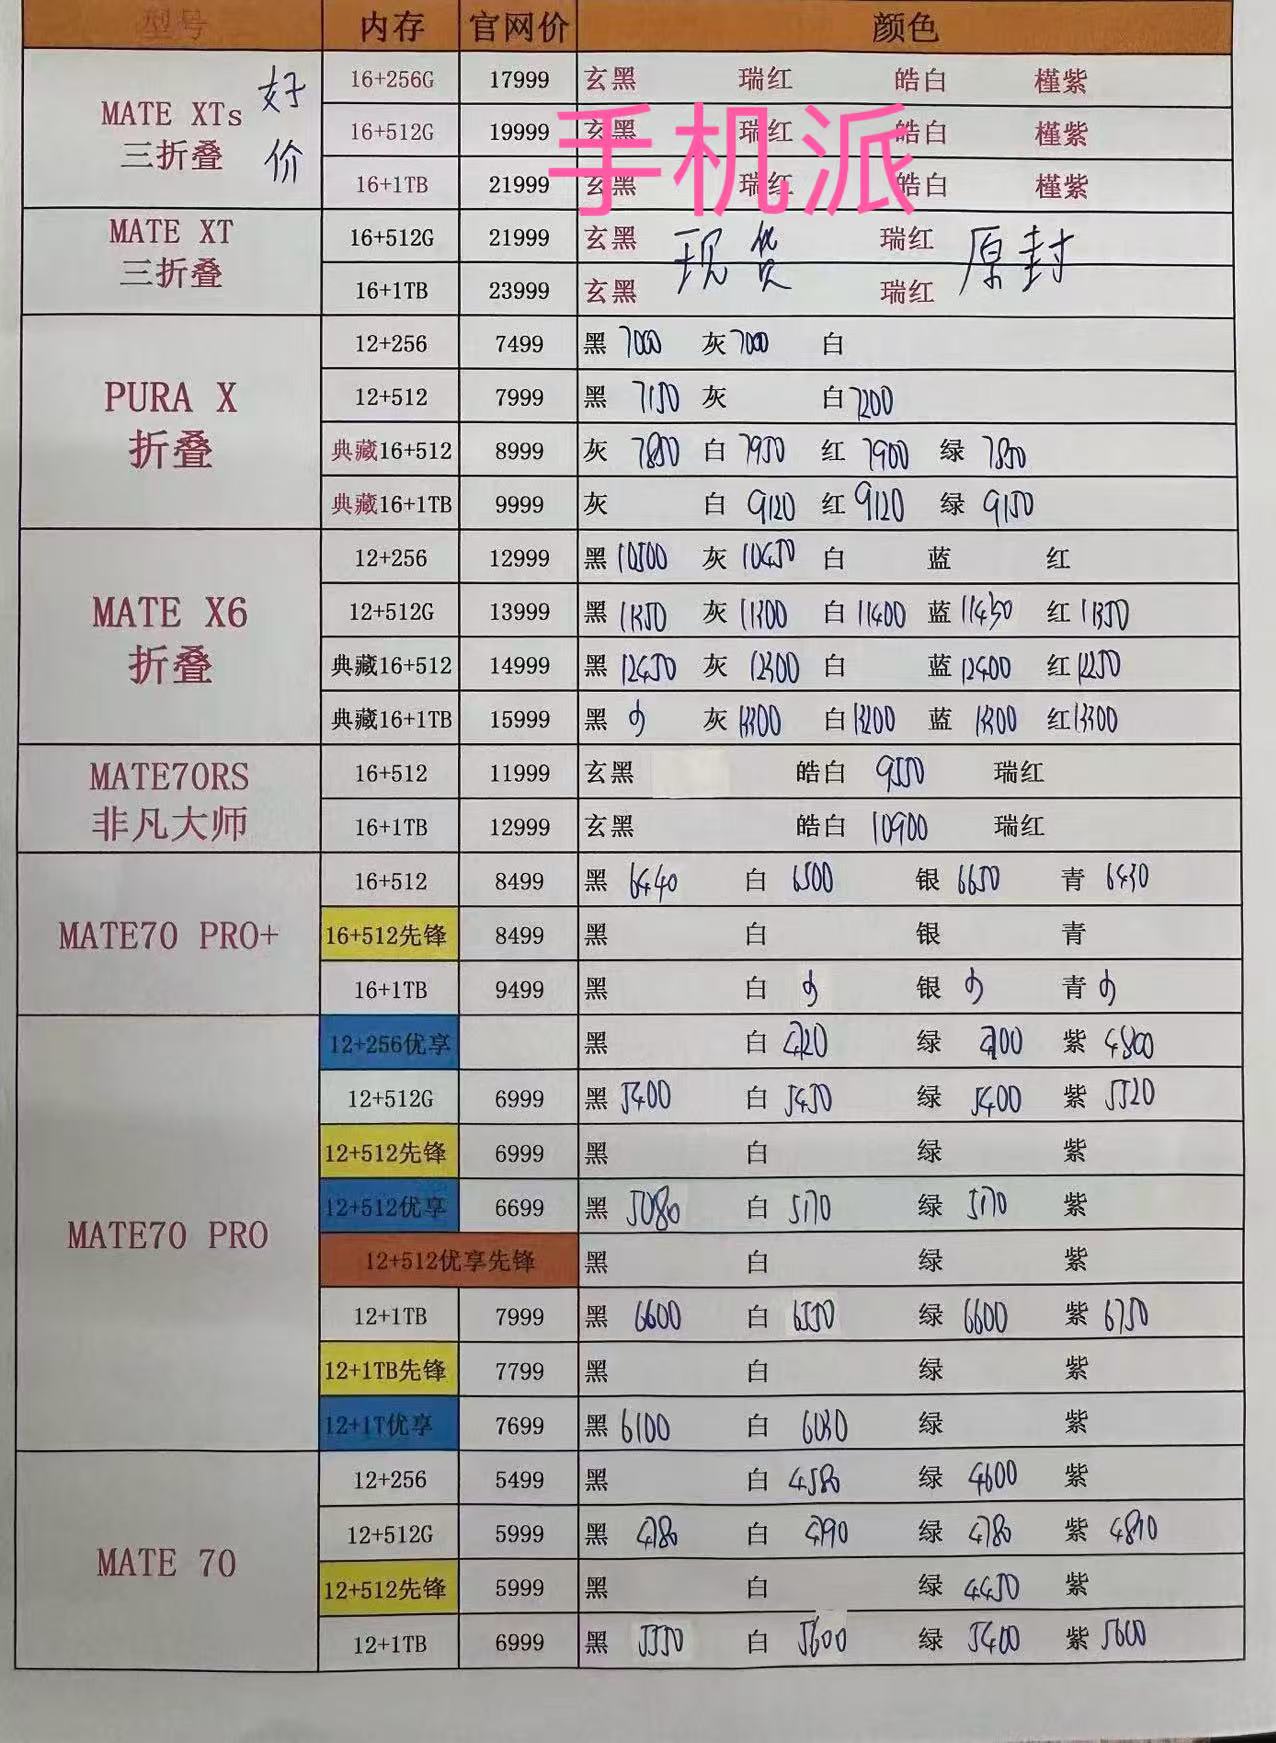 型号 内存 官网价 颜色
MATE XTs 三折叠 好价
16+256G 17999 玄黑 瑞红 皓白 槿紫
16+512G 19999 玄黑 瑞红 皓白 槿紫
16+1TB 21999 玄黑 瑞红 皓白 槿紫
手机派
MATE XT 三折叠
16+512G 21999 玄黑 瑞红
现货 原封
16+1TB 23999 玄黑 瑞红
PURA X 折叠
12+256 7499 黑 7000 灰 7000 白
12+512 7999 黑 7150 灰 白 7200
典藏16+512 8999 灰 7850 白 7950 红 7900 绿 7850
典藏16+1TB 9999 灰 白 9120 红 9120 绿 9150
MATE X6 折叠
12+256 12999 黑 10500 灰 10450 白 蓝 红
12+512G 13999 黑 11350 灰 11300 白 11400 蓝 11450 红 11350
典藏16+512 14999 黑 12450 灰 12300 白 蓝 12400 红 12250
典藏16+1TB 15999 黑 灰 13300 白 13200 蓝 13300 红 13300
MATE70RS 非凡大师
16+512 11999 玄黑 皓白 9550 瑞红
16+1TB 12999 玄黑 皓白 10900 瑞红
MATE70 PRO+
16+512 8499 黑 6440 白 6500 银 6650 青 6430
16+512先锋 8499 黑 白 银 青
16+1TB 9499 黑 白 银 青
MATE70 PRO
12+256优享 黑 白 4720 绿 4700 紫 4800
12+512G 6999 黑 5400 白 5450 绿 5400 紫 5520
12+512先锋 6999 黑 白 绿 紫
12+512优享 6699 黑 5080 白 5170 绿 5170 紫
12+512优享先锋 黑 白 绿 紫
12+1TB 7999 黑 6600 白 6550 绿 6600 紫 6750
12+1TB先锋 7799 黑 白 绿 紫
12+1T优享 7699 黑 6100 白 6030 绿 紫
MATE 70
12+256 5499 黑 白 4580 绿 4600 紫
12+512G 5999 黑 4780 白 4790 绿 4780 紫 4810
12+512先锋 5999 黑 白 绿 4450 紫
12+1TB 6999 黑 5550 白 5600 绿 5400 紫 5600